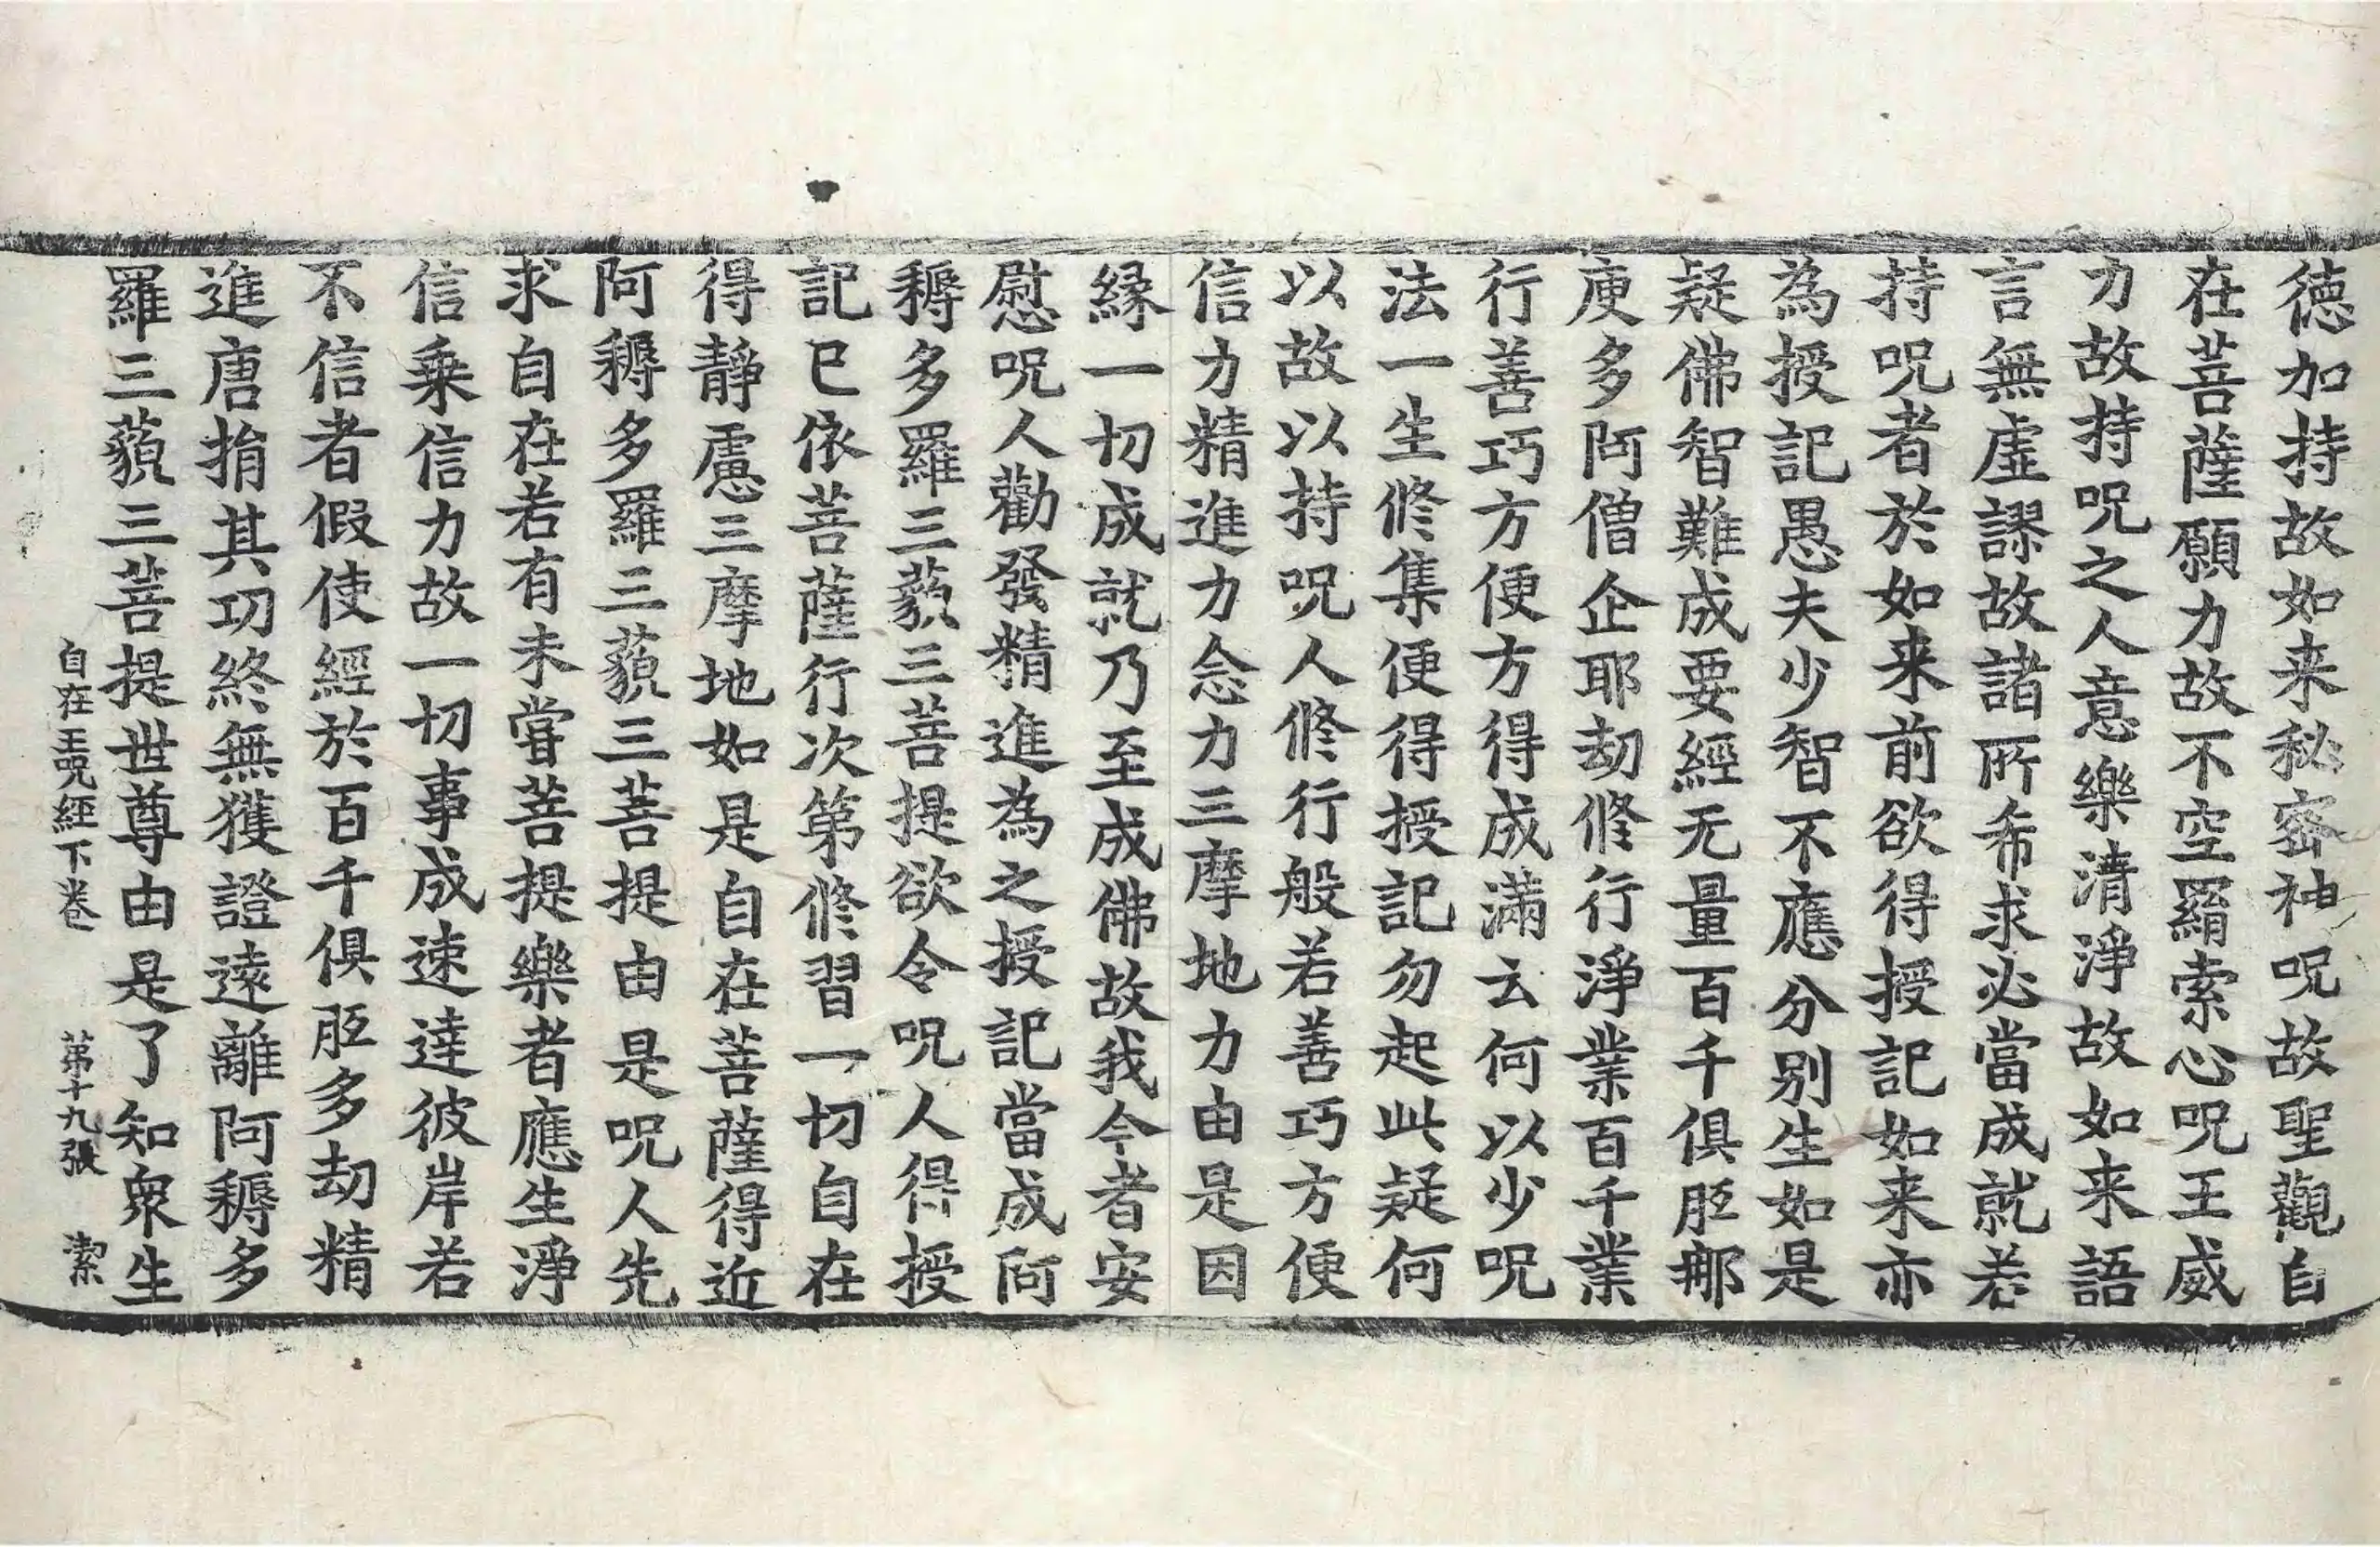 德加持故如来秘密神呪故聖觀自
在菩薩願力故不空羂索心呪王威
力故持呪之人意樂清淨故如来語
言無虛謬故諸所希求必當成就若
持呪者於如来前欲得授記如来亦
為授記愚夫少智不應分别生如是
疑佛智難成要經无量百千俱胝那
庾多阿僧企耶劫修行淨業百千業
行善巧方便方得成滿云何以少呪
法一生修集便得授記勿起此疑何
以故以持呪人修行般若善巧方便
信力精進力念力三摩地力由是因
緣一切成就乃至成佛故我今者安
慰呪人勸發精進為之授記當成阿
耨多羅三藐三菩提欲令呪人得授
記已依菩薩行次第修習一切自在
得靜慮三摩地如是自在菩薩得近
阿耨多羅三藐三菩提由是呪人先
求自在若有未甞菩提樂者應生淨
信乗信力故一切事成速達彼岸若
不信者假使經於百千俱胝多劫精
進唐捐其功終無獲證遠離阿耨多
羅三藐三菩提世尊由是了知衆生
自在王呪經下卷 第十九張 潔